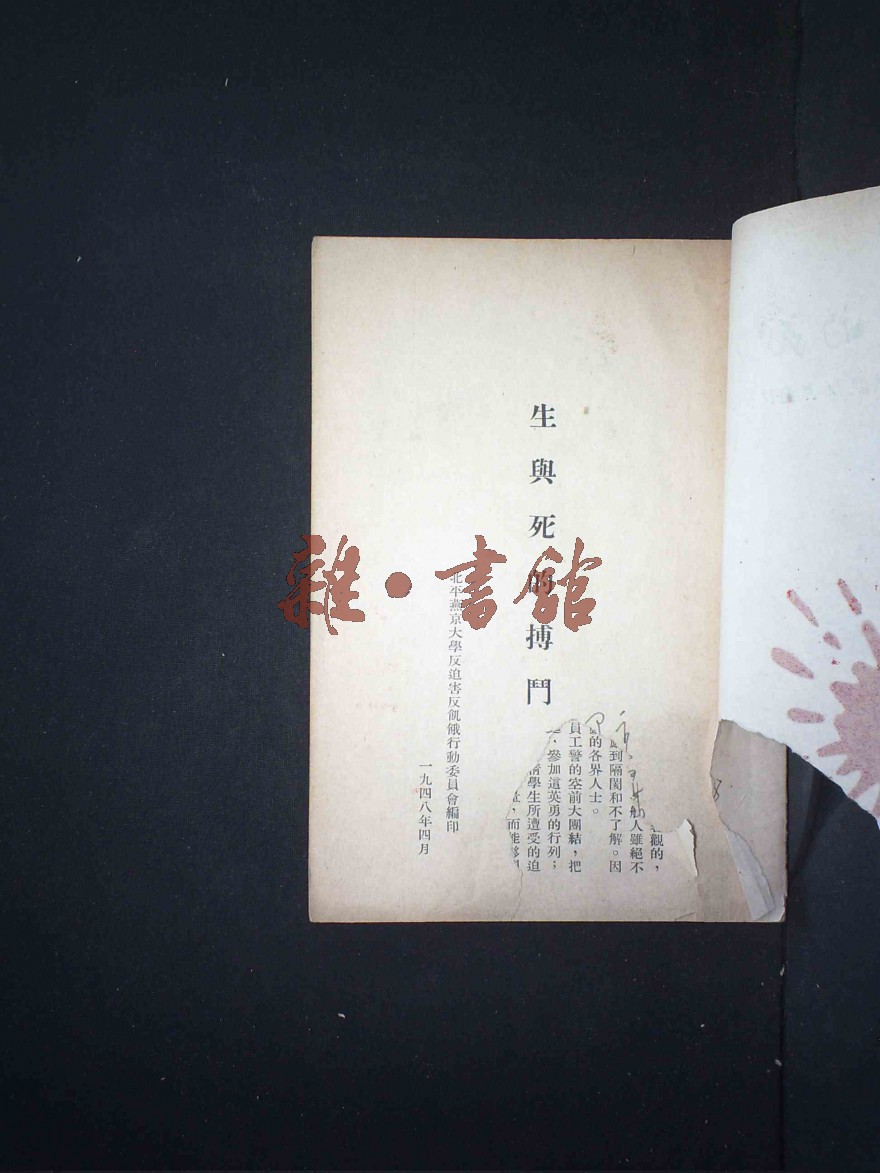 生與死的搏鬥
北平燕京大學反迫害反飢餓行動委員會編印
一九四八年四月
觀的，
人雖絕不
到隔閡和不了解。因
的各界人士。
員工警的空前大團結，把
參加這英勇的行列；
學生所遭受的迫
而能夠
雜·書館